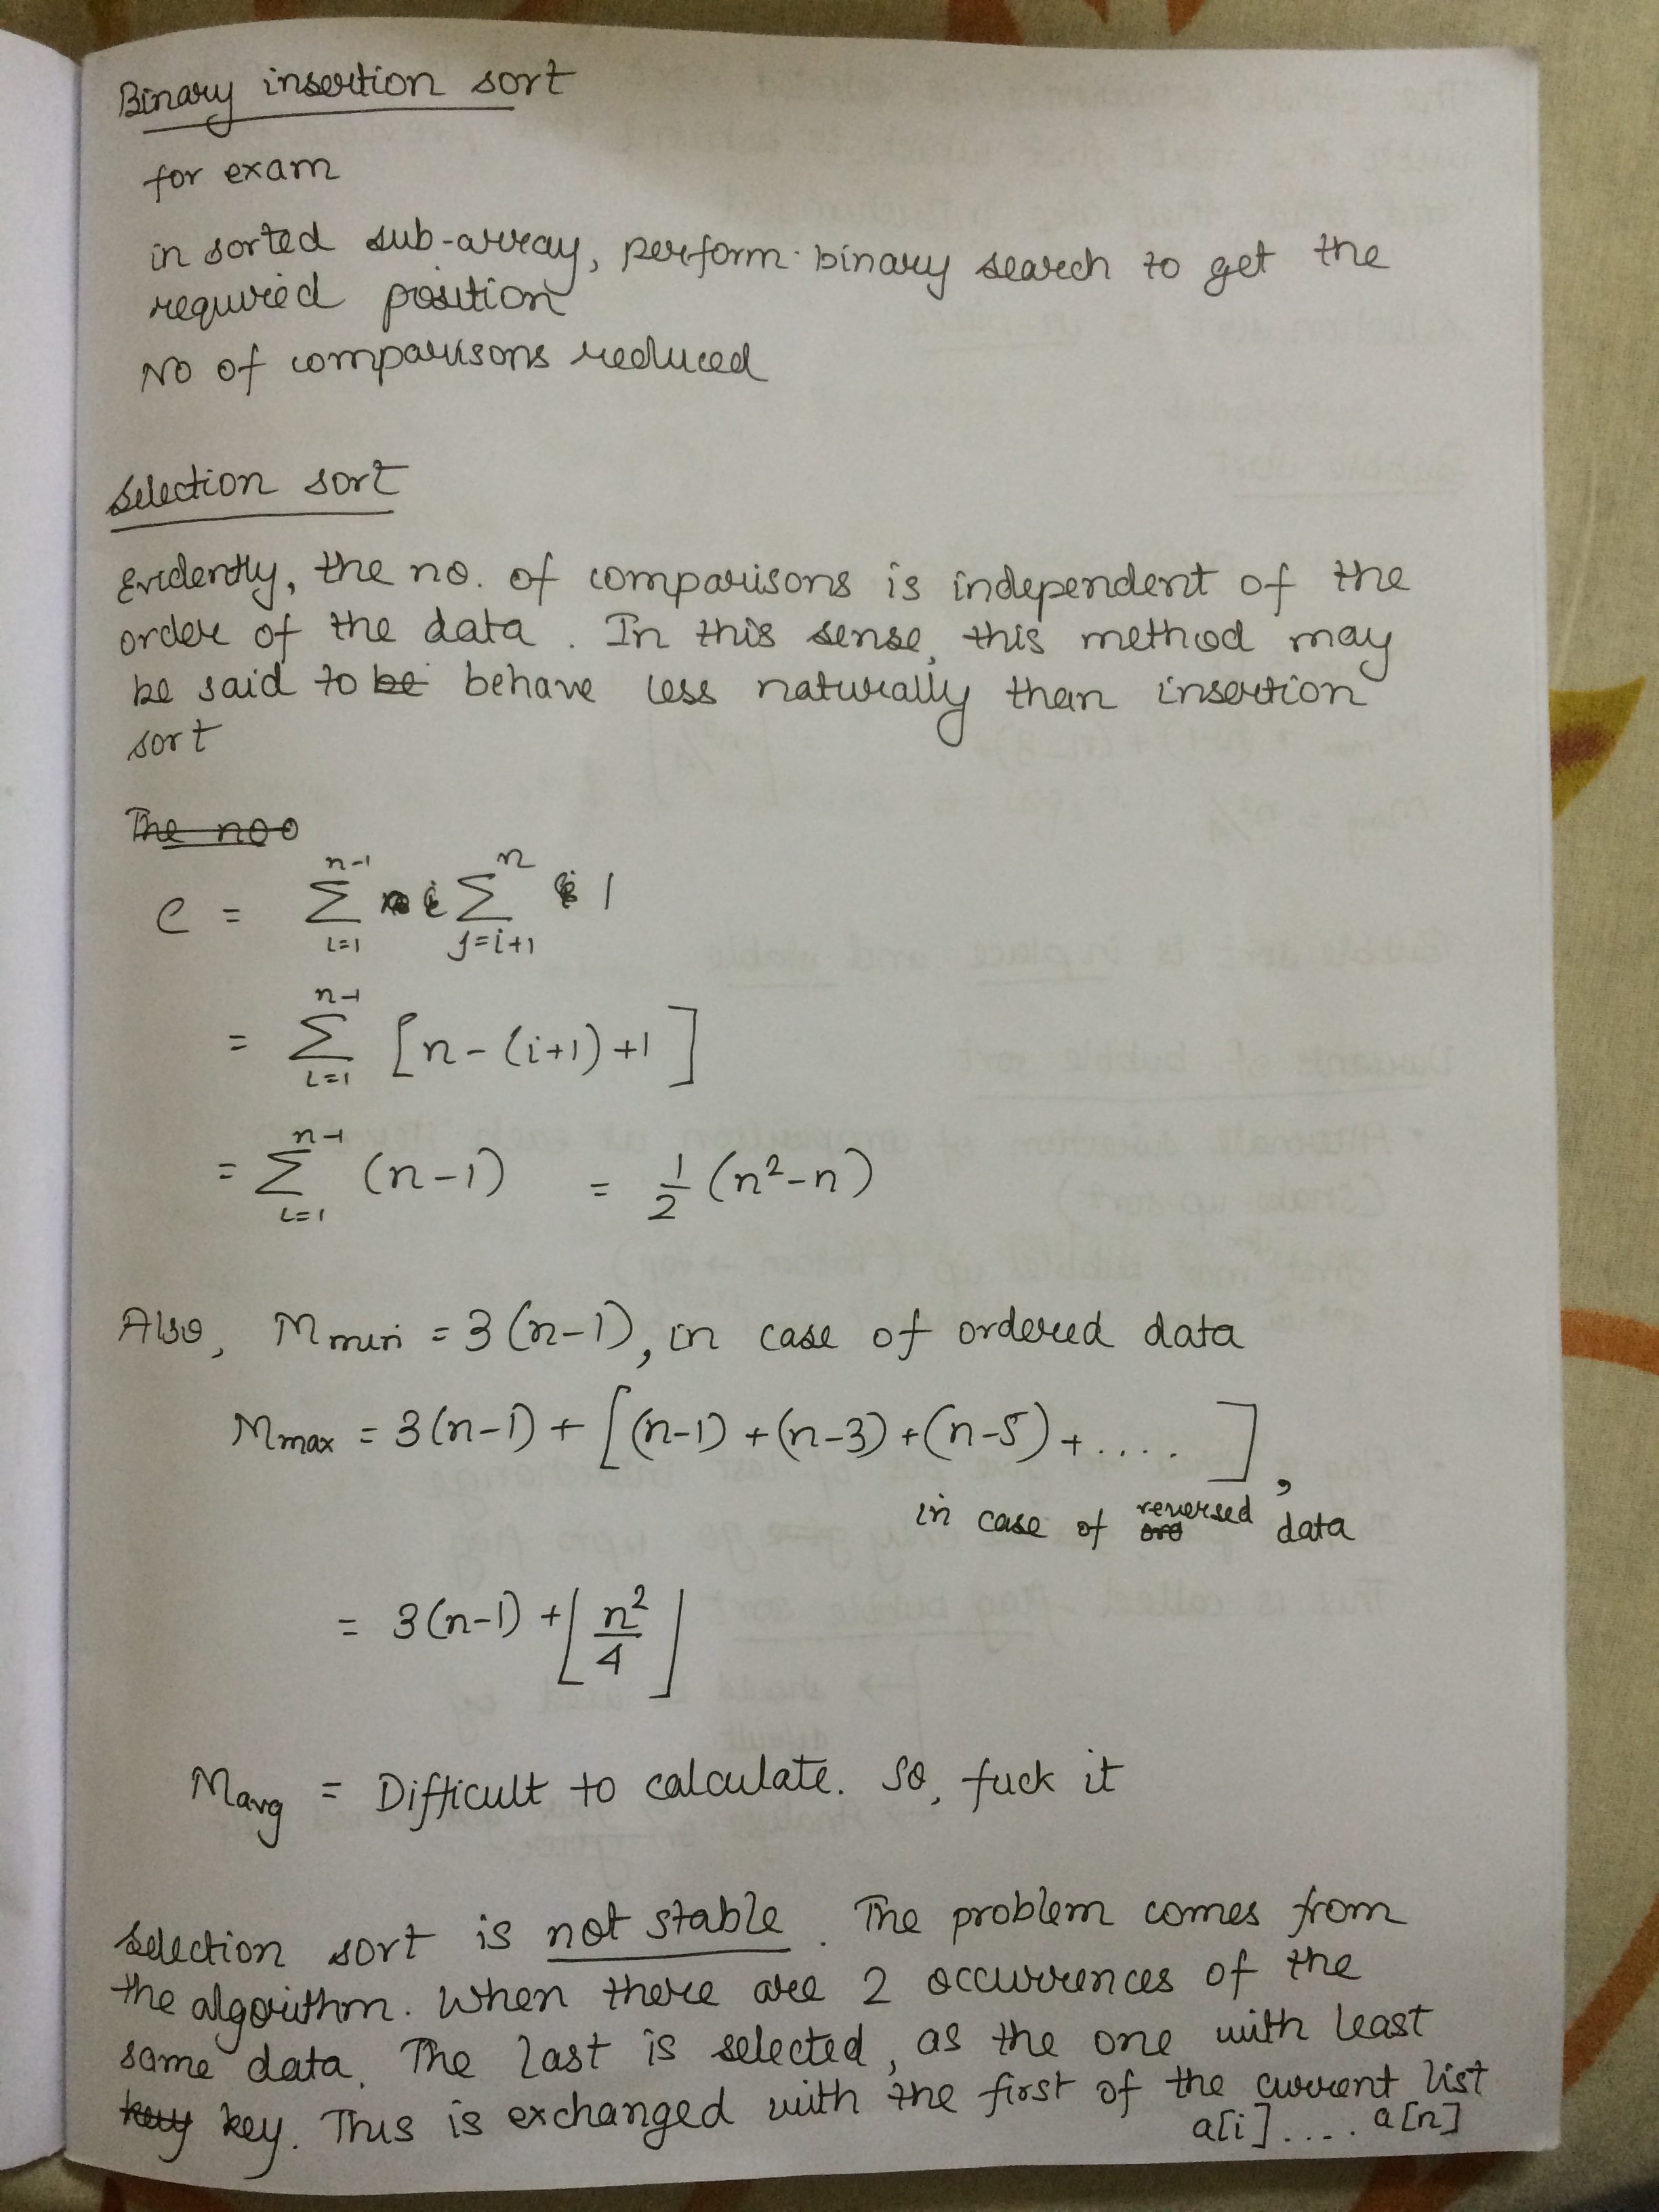 Binary insertion sort
for exam
in sorted sub-array, perform binary search to get the
required position
NO of comparisons reduced
Selection sort
Evidently, the no. of comparisons is independent of the
order of the data. In this sense, this method may
be said to be behave less naturally than insertion
sort
The no
C = Σ_{i=1}^{n-1} Σ_{j=i+1}^{n} 1
= Σ_{i=1}^{n-1} [n-(i+1)+1]
= Σ_{i=1}^{n-1} (n-1) = 1/2 (n²-n)
Also, Mmin = 3(n-1), in case of ordered data
Mmax = 3(n-1) + [(n-1)+(n-3)+(n-5)+....],
in case of reversed data
= 3(n-1) + ⌊n²/4⌋
Mavg = Difficult to calculate. So, fuck it
Selection sort is not stable. The problem comes from
the algorithm. When there are 2 occurrences of the
same data. The last is selected, as the one with least
key key. This is exchanged with the first of the current list
a[i].... a[n]